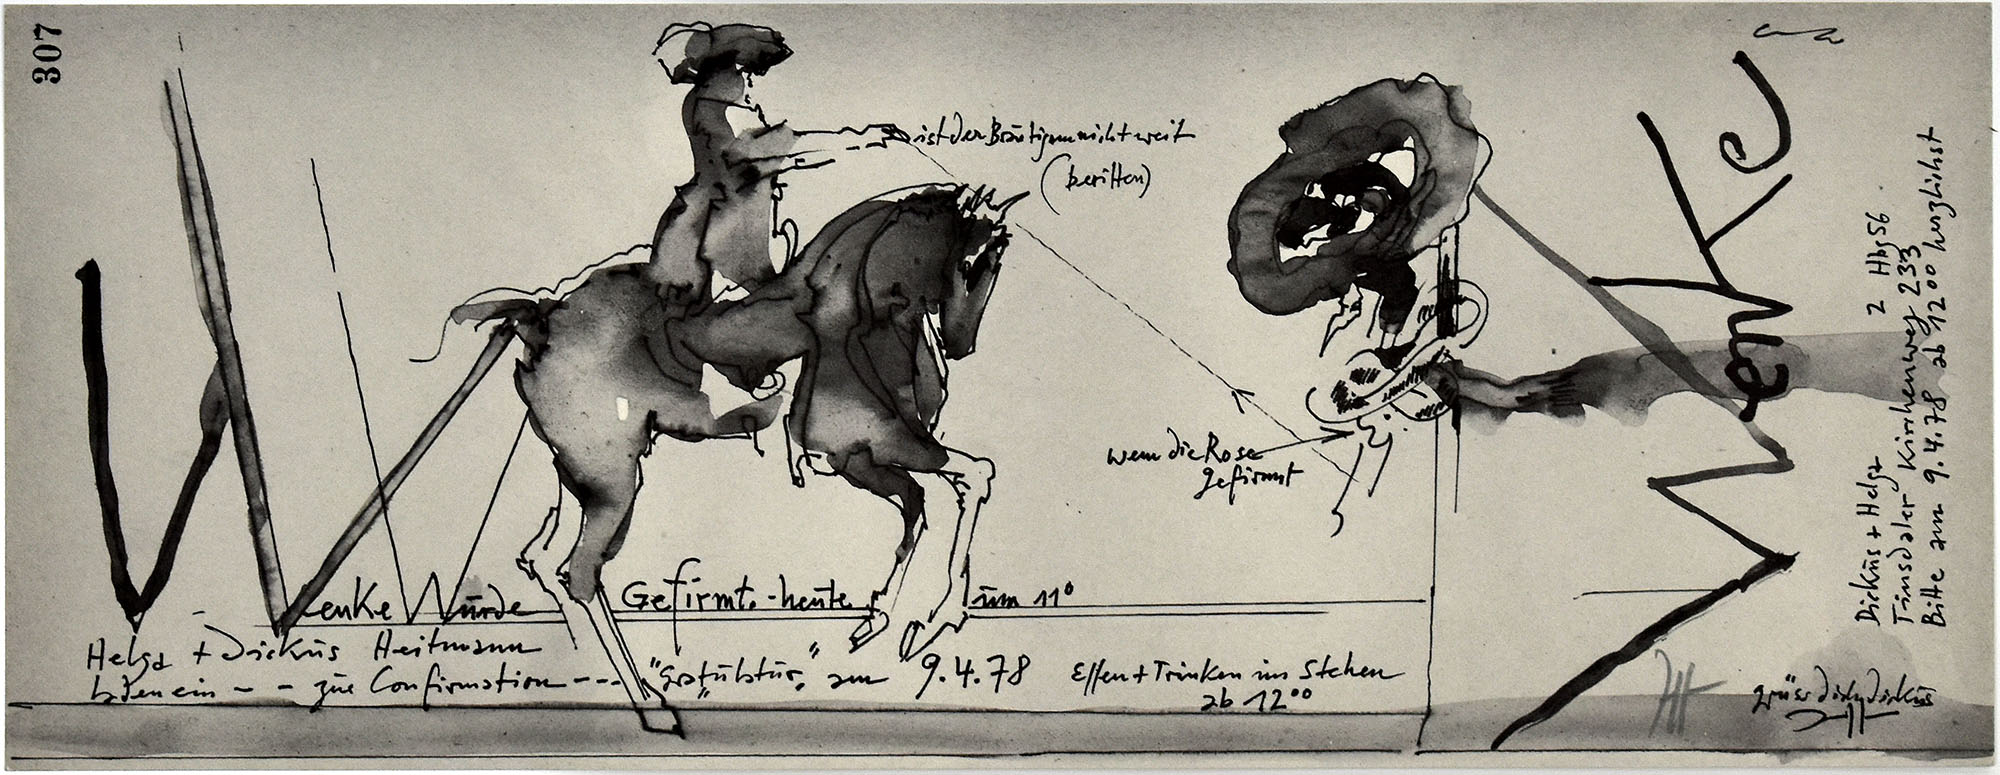 307
ist der Bräutigam nicht weit
(beritten)
wenn die Rose
gefirmt
Wenke Würde Gefirmt.-heute um 11°
Helga + Dirküs Heitmann
laden ein - - zür Confirmation - - - "Gratülatür" am 9.4.78 Essen + Trinken im Stehen
ab 12°°
Wenke
Dirküs + Helga 2 Hbg 56
Tinsdaler Kirchenweg 233
Bitte am 9.4.78 ab 12°° herzlichst
grüss dich, dirküs